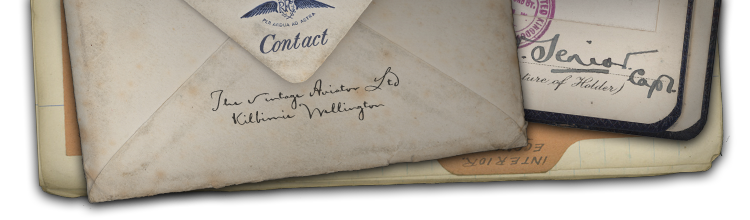 PER ACQUA AD AETRA
Contact
The Vintage Aviator Ltd
Kilbirnie Wellington
Senior Capt
ture of Holder)
INTERIOR